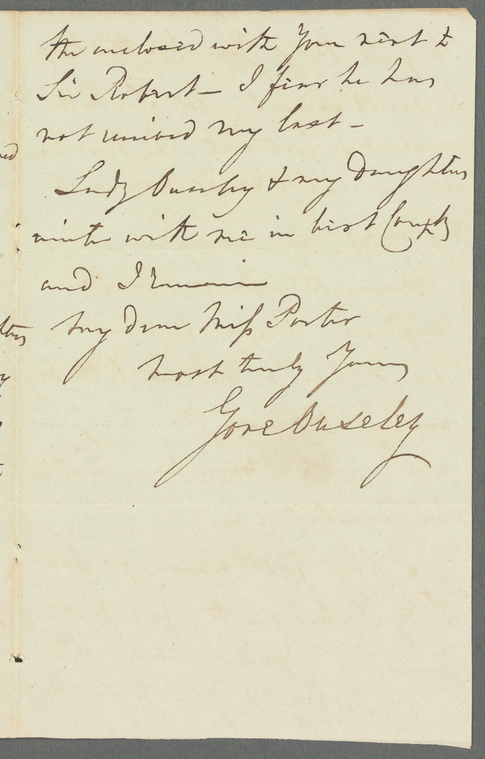 the enclosed with your next to
Sir Robert — I fear he has
not received my last —
Lady Ouseley & my Daughters
unite with me in best Compts
and I remain
My dear Miss Porter
most truly Yours
Gore Ouseley